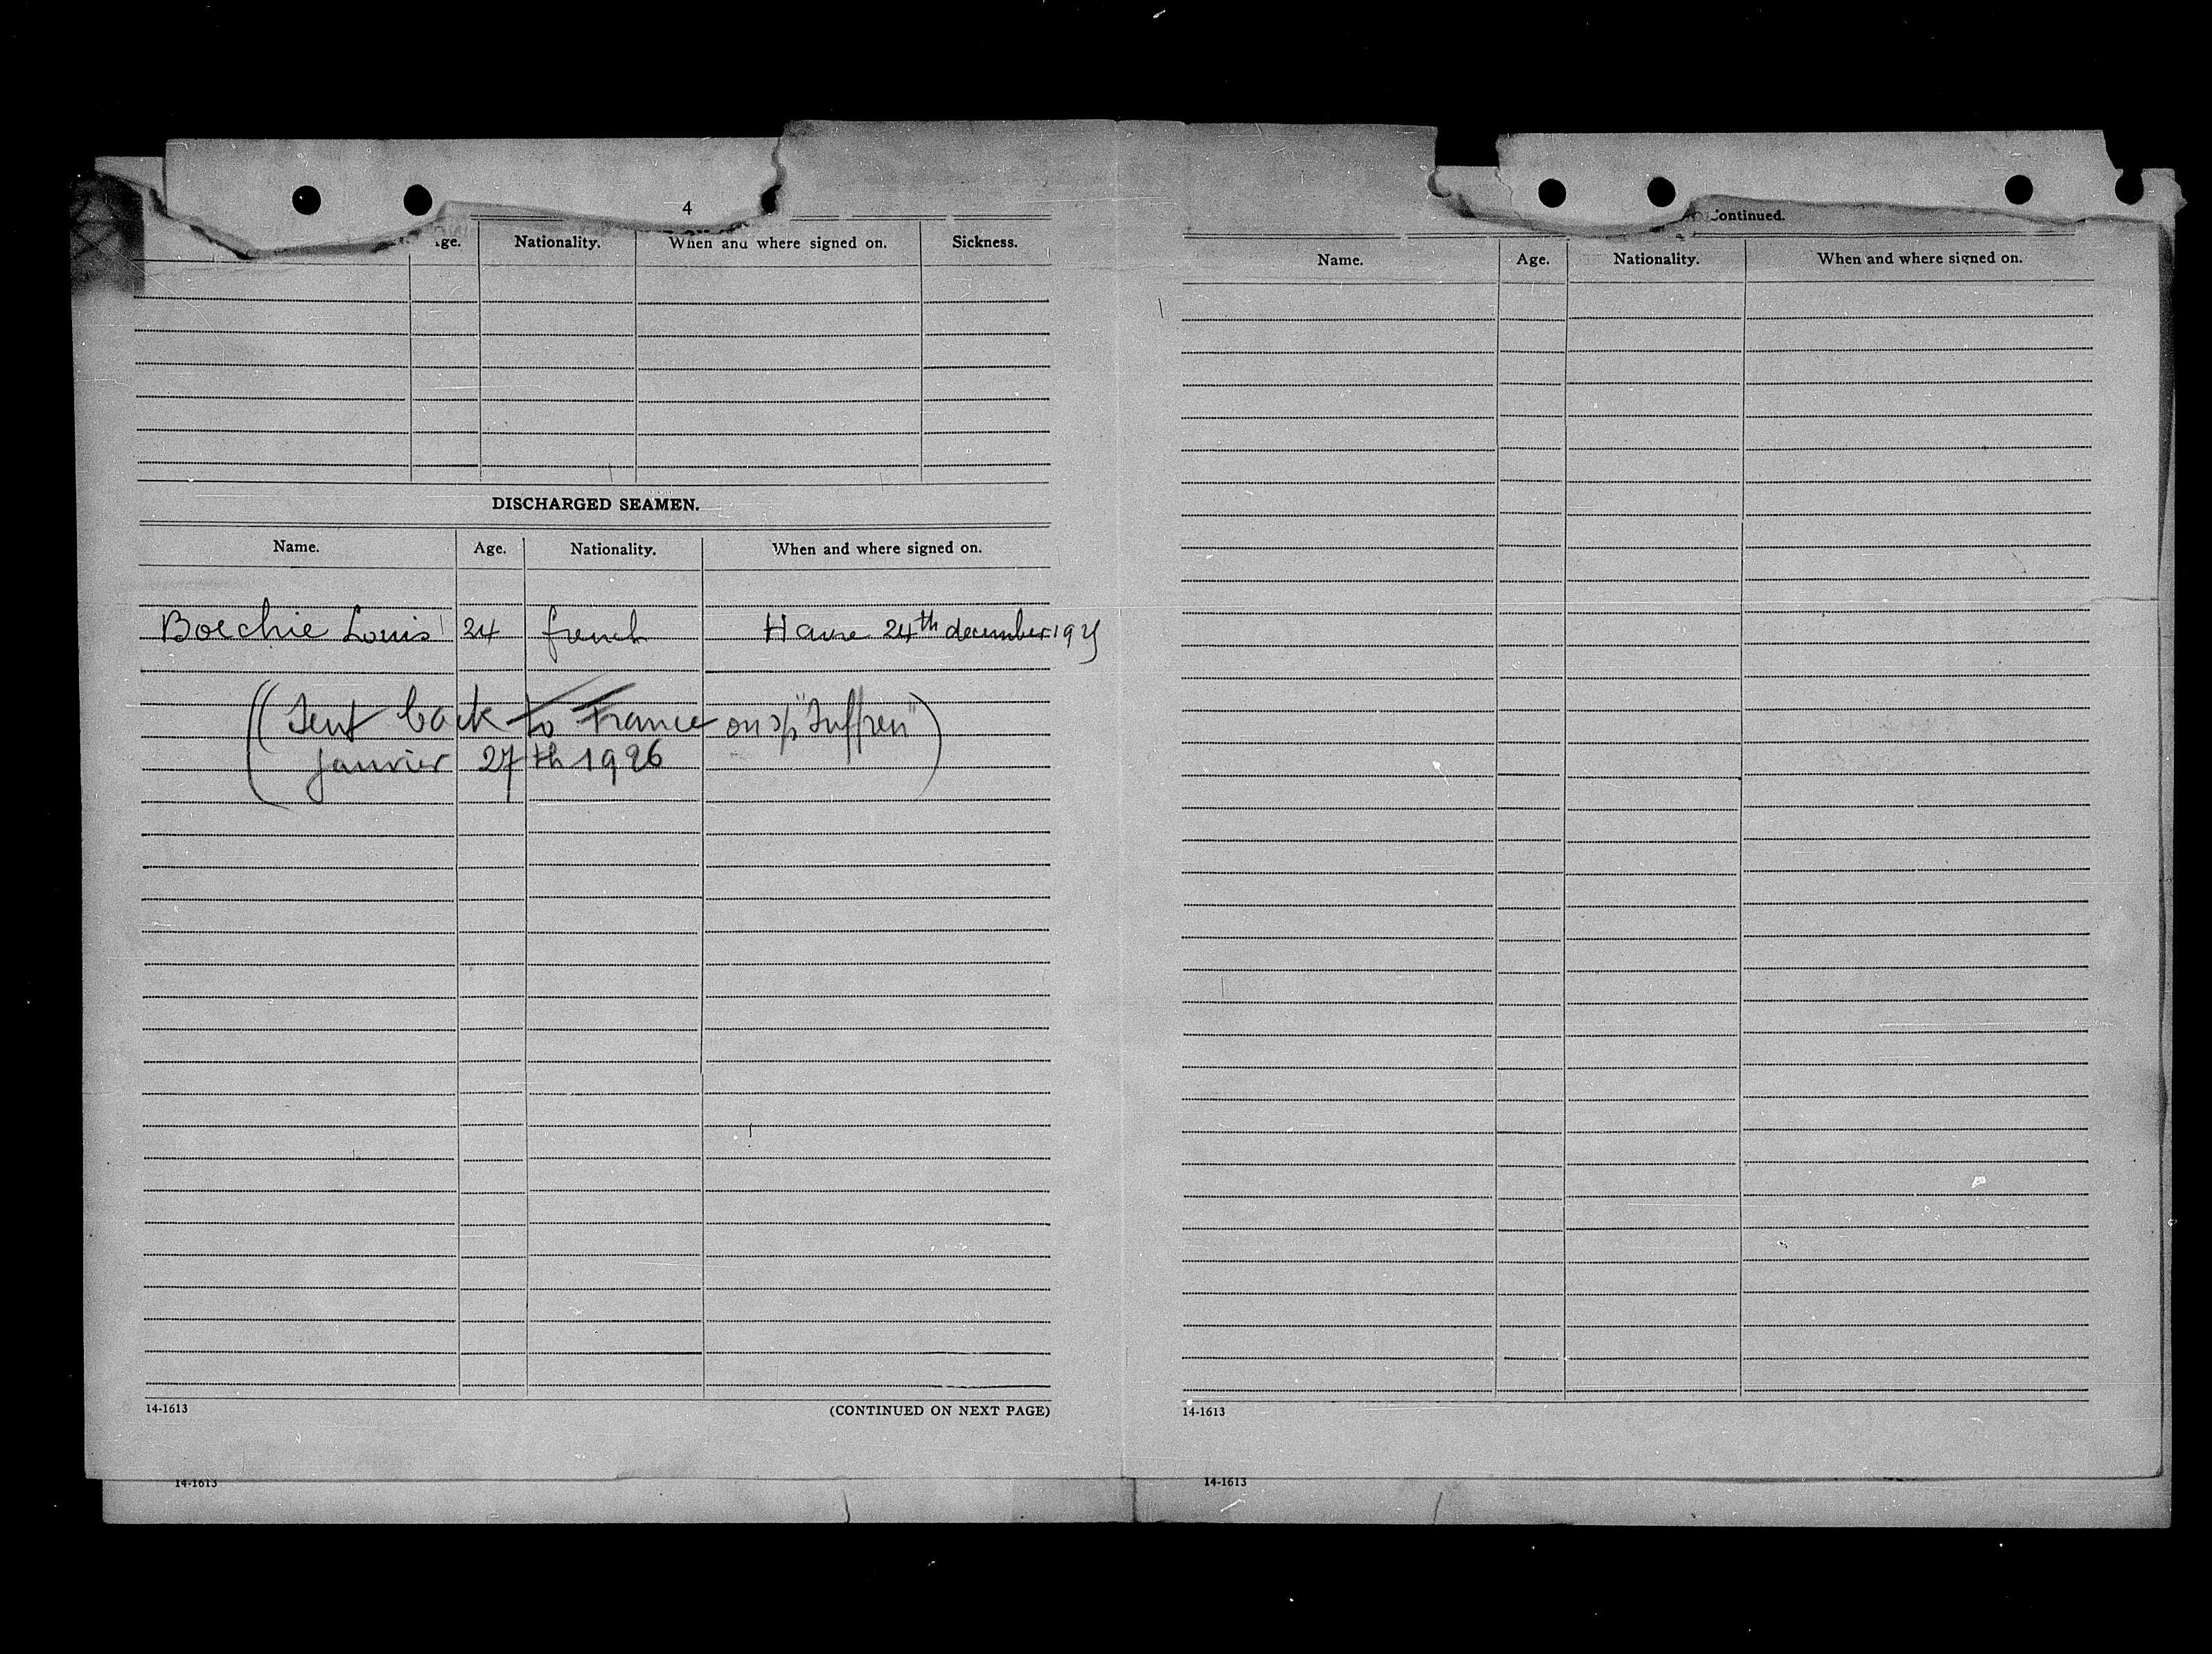 4
Nationality. When and where signed on. Sickness.
DISCHARGED SEAMEN.
Name. Age. Nationality. When and where signed on.
Boechie Louis 24 french Havre 24th december 1925
(Sent back to France on s/s "Suffren"
janvier 27th 1926)
14-1613 (CONTINUED ON NEXT PAGE)
14-1613
Continued.
Name. Age. Nationality. When and where signed on.
14-1613
14-1613